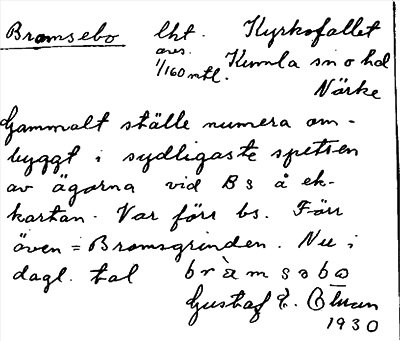 Bromsebo lht. Kyrkofallet
avs. Kumla sn o hd
1/160 mtl. Närke
Gammalt ställe numera om-
byggt i sydligaste spetsen
av ägorna vid Bs å ek-
kartan. Var förr bs. Förr
även = Bromsgrinden. Nu i
dagl. tal bràmsəbo
Gustaf E.
1930